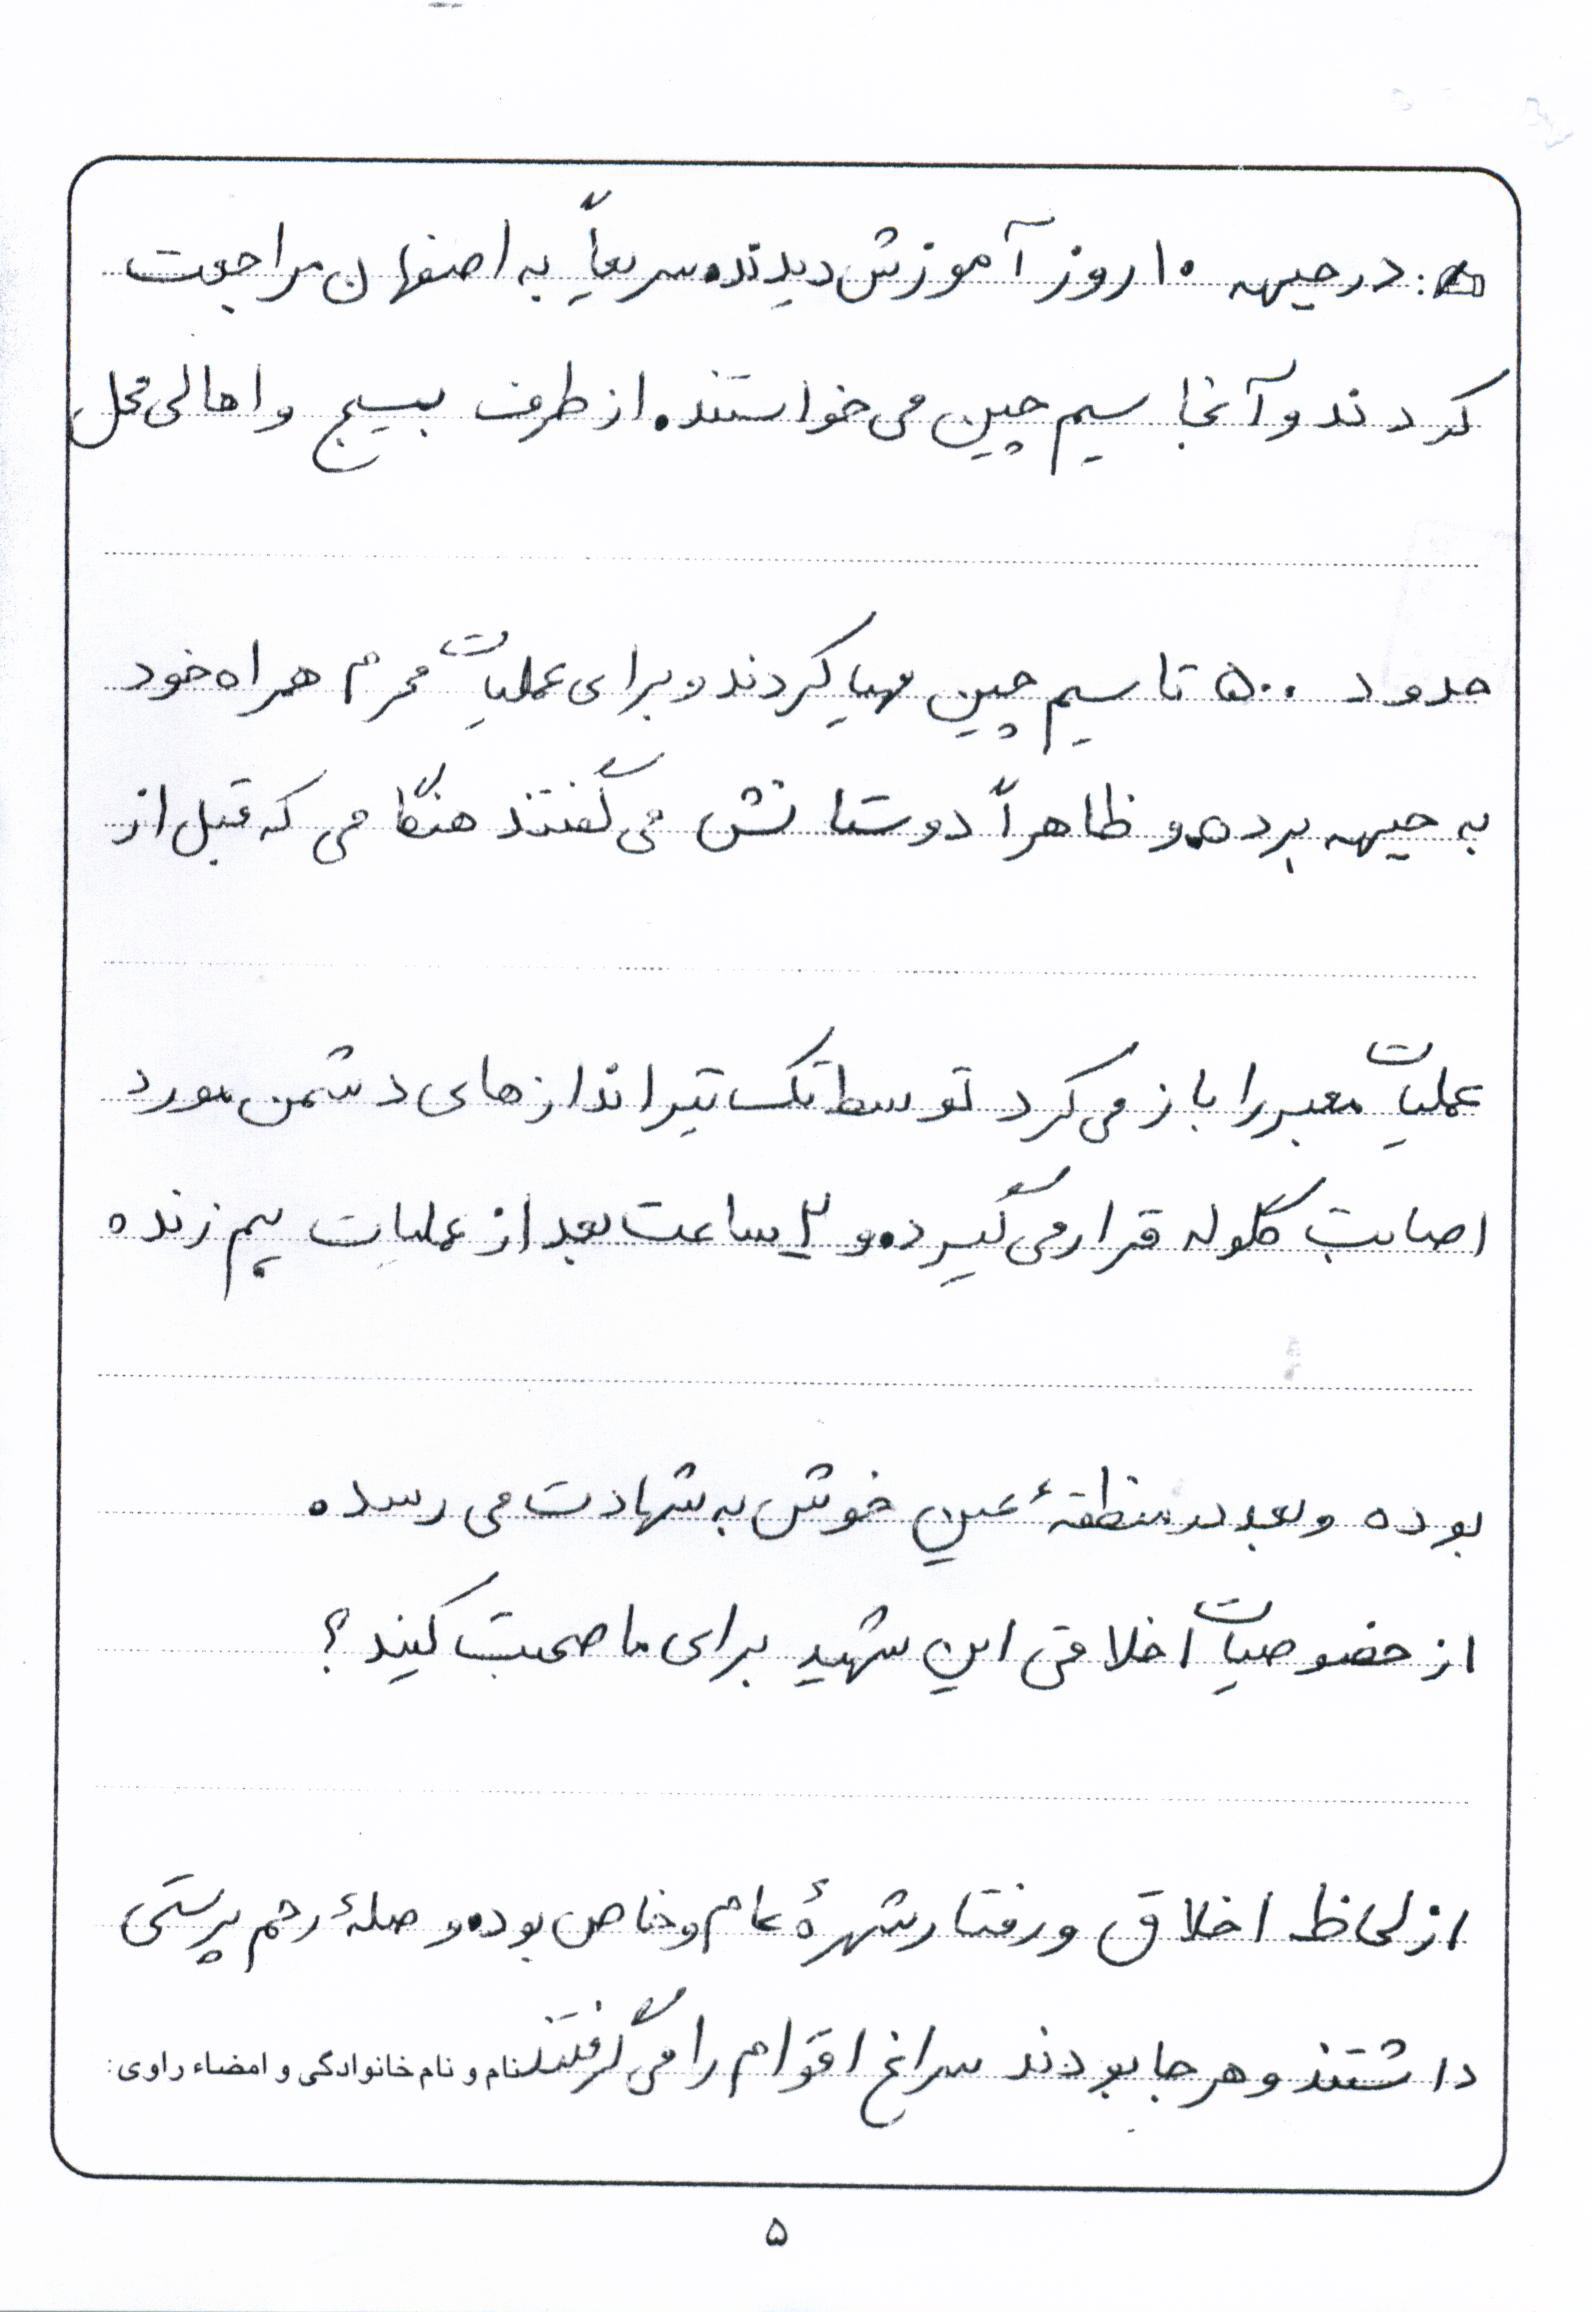 : در جبهه ۱۰ روز آموزش دیدند. سریعاً به اصفهان مراجعت
کردند و آنجا سیم چین می خواستند. از طرف بسیج و اهالی محل
حدود ۵۰۰ تا سیم چین مهیا کردند و برای عملیات محرم همراه خود
به جبهه برده و ظاهراً دوستانش می گفتند هنگامی که قبل از
عملیات معبر را باز می کرد توسط تک تیراندازهای دشمن مورد
اصابت گلوله قرار می گیرد. و ۲ ساعت بعد از عملیات هم زنده
بوده و بعد در منطقهٔ عین خوش به شهادت می رسد.
از خصوصیات اخلاقی این شهید برای ما صحبت کنید؟
از لحاظ اخلاق و رفتار شهرهٔ عام و خاص بود. و صلهٔ رحم پرستی
داشتند و هر جا بودند سراغ اقوام را می گرفتند نام و نام خانوادگی و امضاء راوی:
۵